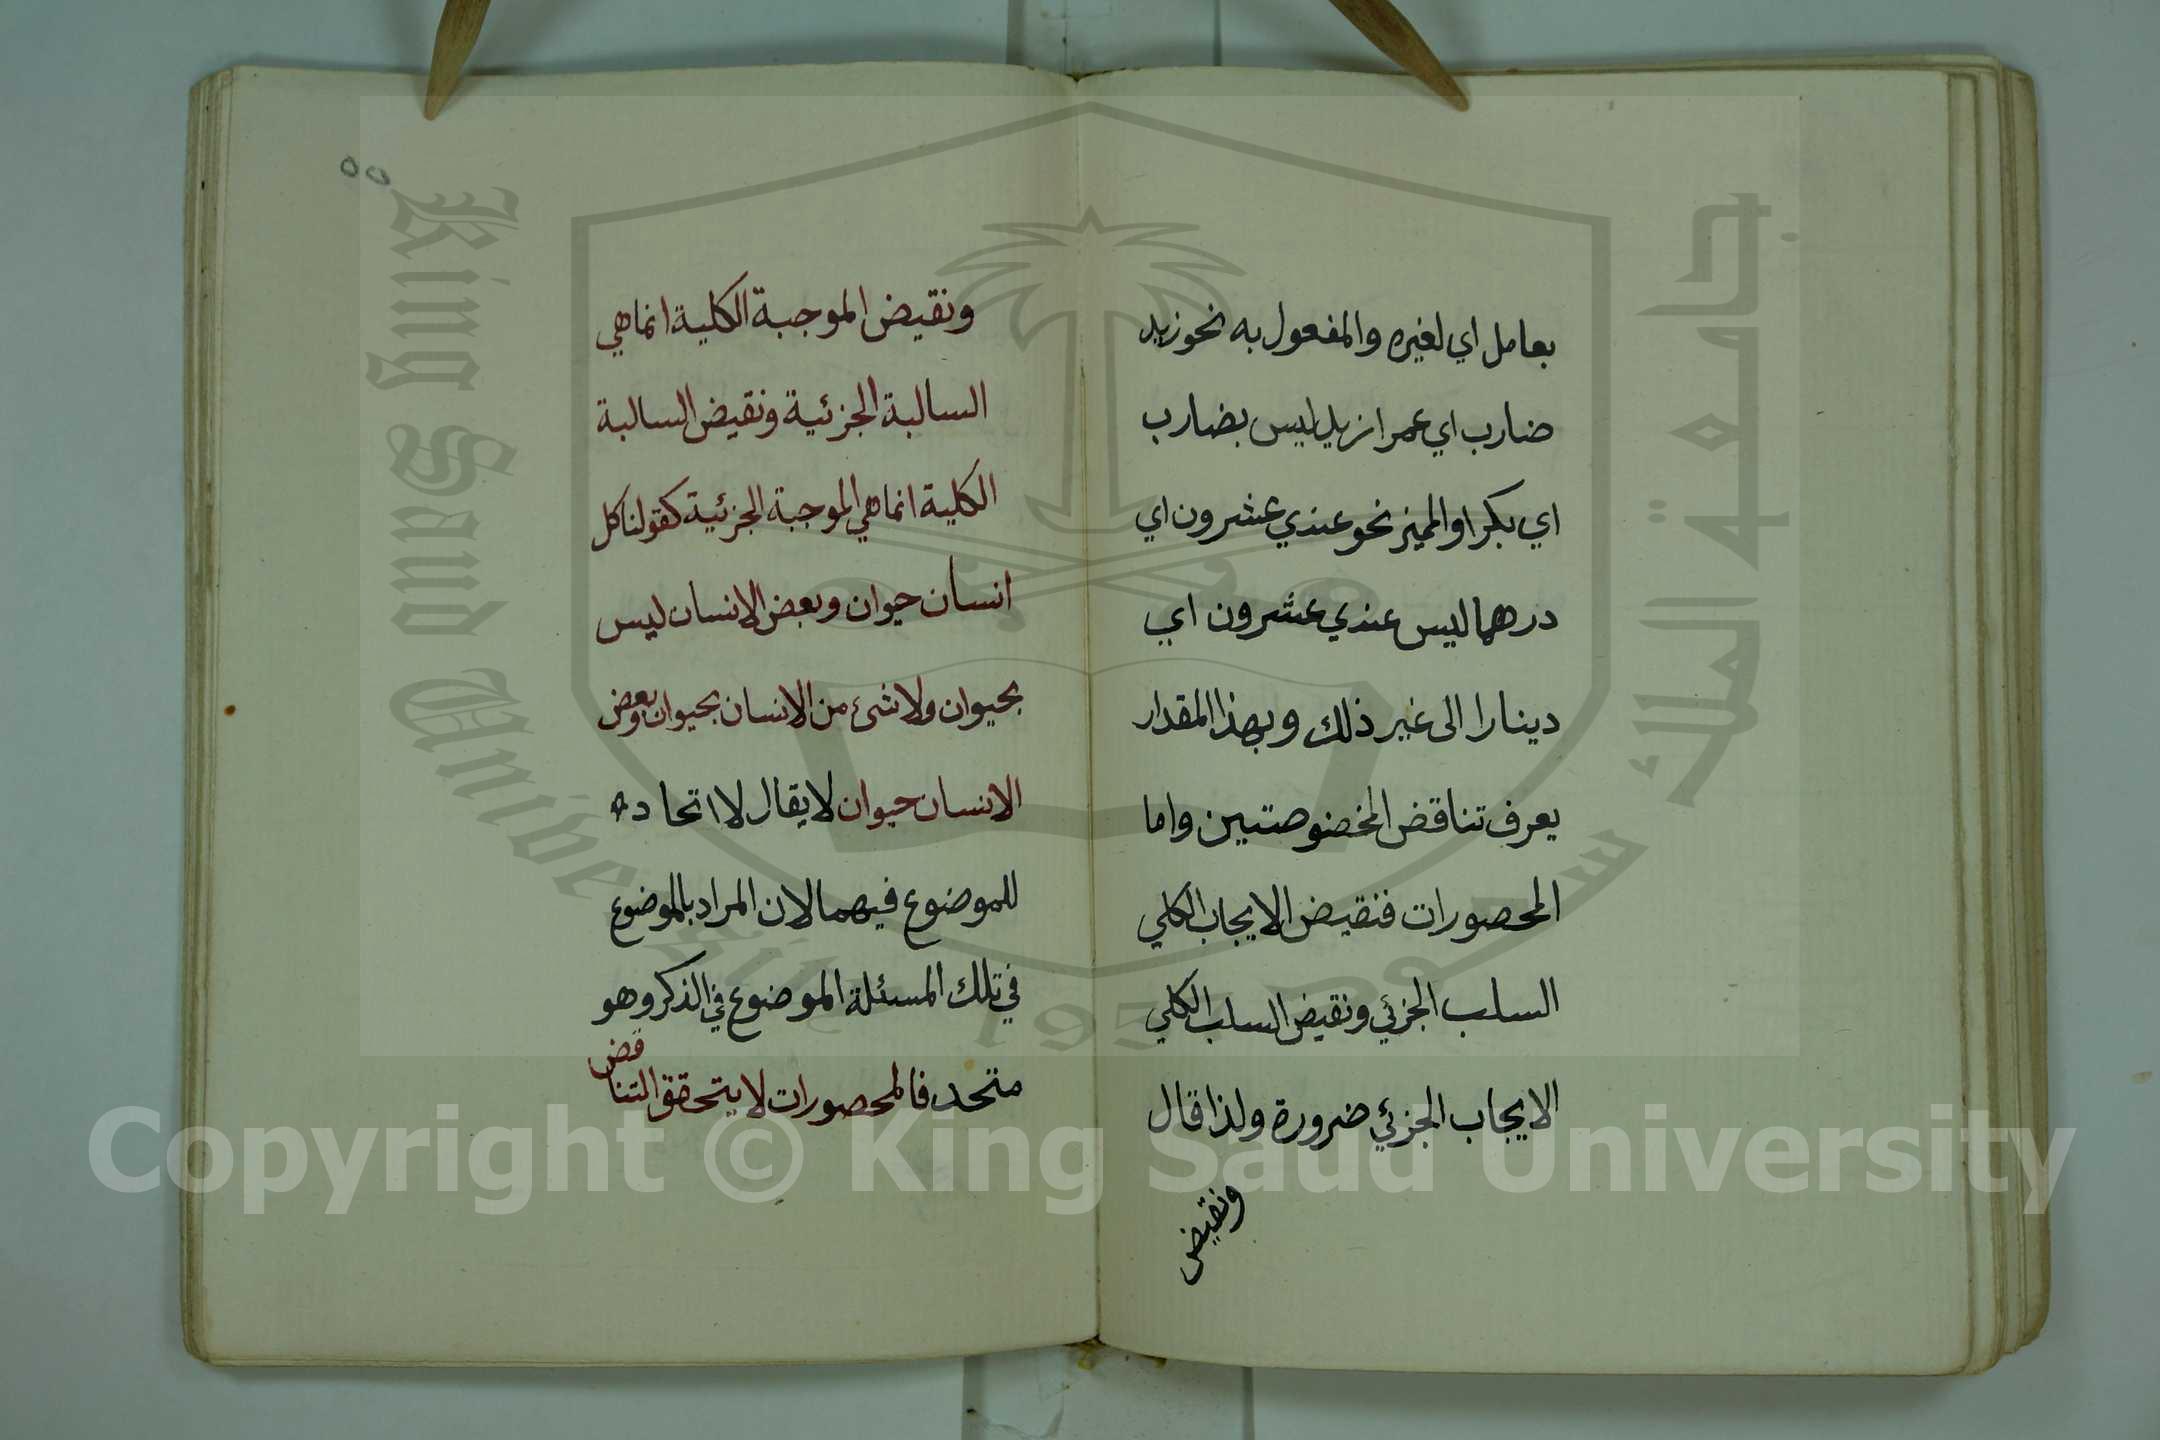 بعامل اي لغيره والمفعول به نحو زيد
ضارب اي عمرا زيد ليس بضارب
اي بكرا والمميز نحو عندي عشرون اي
درهما ليس عندي عشرون اي
دينارا الى غير ذلك وبهذا المقدار
يعرف تناقض المخصوصتين واما
المحصورات فنقيض الايجاب الكلي
السلب الجزئي ونقيض السلب الكلي
الايجاب الجزئي ضرورة ولذا قال
ونقيض
٥٥
ونقيض الموجبة الكلية انما هي
السالبة الجزئية ونقيض السالبة
الكلية انما هي الموجبة الجزئية كقولنا كل
انسان حيوان وبعض الانسان ليس
بحيوان ولا شئ من الانسان بحيوان وبعض
الانسان حيوان لا يقال لا اتحاد
للموضوع فيهما لان المراد بالموضوع
في تلك المسئلة الموضوع في الذكر وهو
متحد فالمحصورات لا يتحقق التناقض
King Saud University
جامعة الملك سعود
1957
Copyright © King Saud University